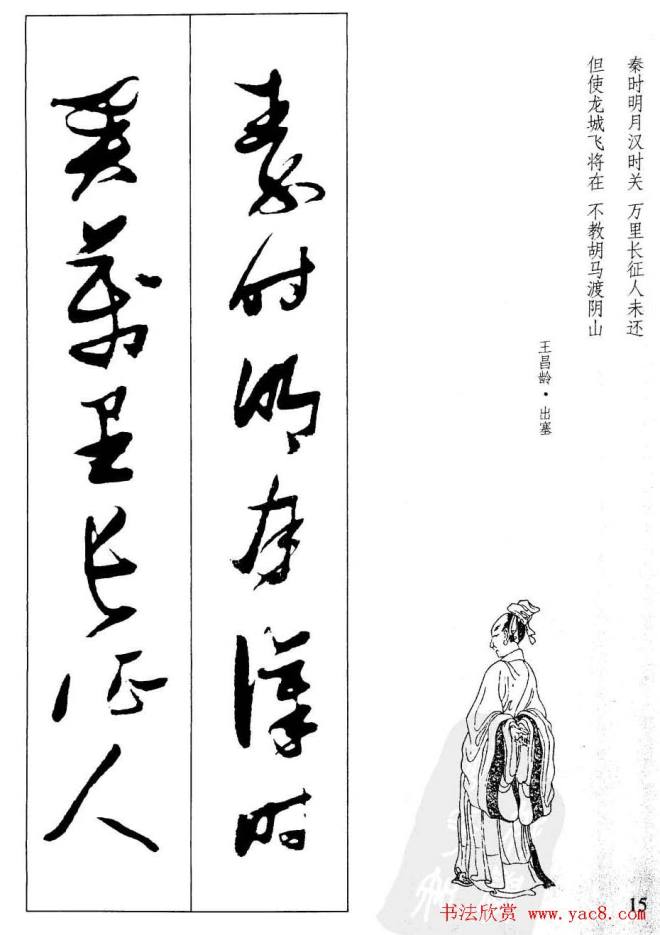 秦时明月汉时关 万里长征人未还
但使龙城飞将在 不教胡马渡阴山
王昌龄·出塞
秦时明月汉时
关万里长征人
15
书法欣赏 www.yac8.com